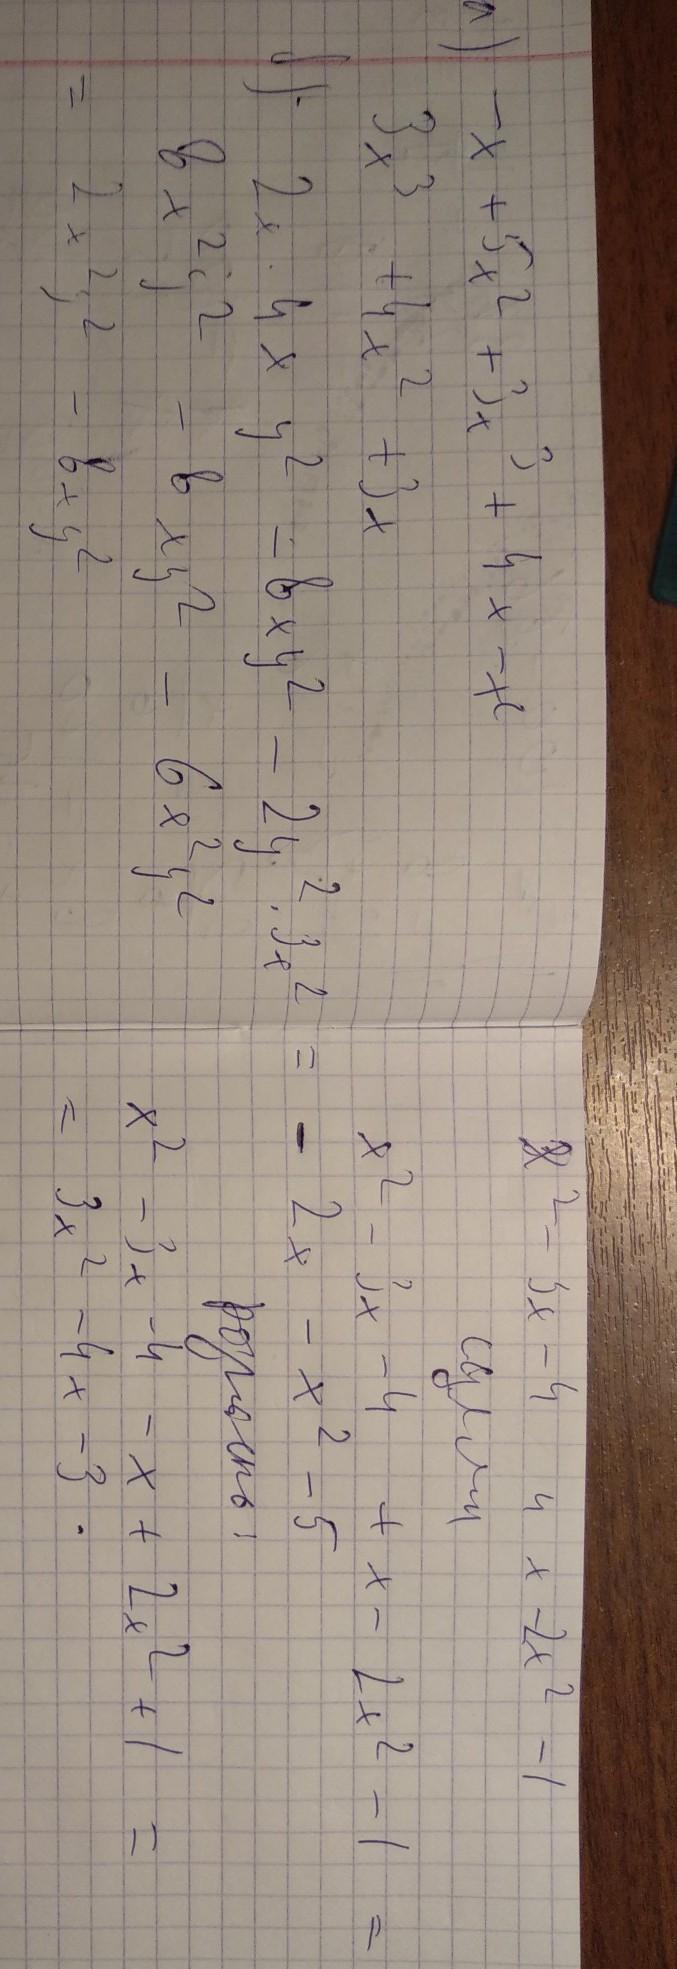 а) -x + 5x² + 3x³ + 4x - x²
3x³ + 4x² + 3x
б). 2x · 4x y² - 8xy² - 2y² · 3x² =
8x²y² - 8xy² - 6x²y²
= 2x²y² - 8xy²
x² - 3x - 4 и x - 2x² - 1
сумм
x² - 3x - 4 + x - 2x² - 1 =
- 2x - x² - 5
разность:
x² - 3x - 4 - x + 2x² + 1 =
= 3x² - 4x - 3.